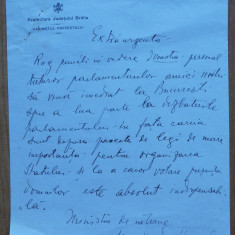 Prefectura Judetului Braila
CABINETUL PREFECTULUI
Extraurgenta
Rog puneti in vedere personal
tuturor parlamentarilor amici nostri
să vina imediat la Bucuresti
spre a lua parte la desbaterile
parlamentului in fata caruia
sunt depuse proecte de legi de mare
importanta pentru organizarea
Statului si la a caror votare prezenta
domnilor este absolut indispensabi
lă.
Ministru de interne